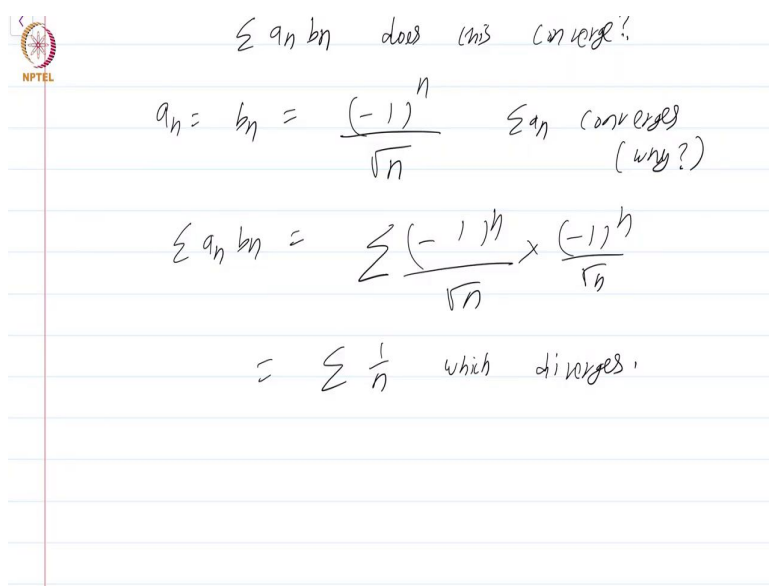 NPTEL
Σ an bn does this converge?
an = bn = (-1)^n / √n Σ an converges
(why?)
Σ an bn = Σ (-1)^n / √n × (-1)^n / √n
= Σ 1/n which diverges.